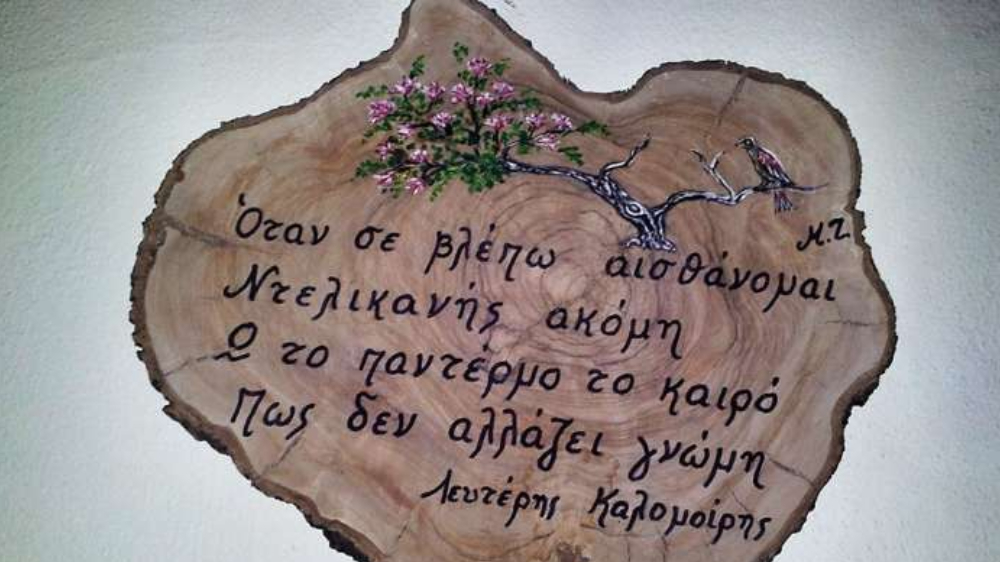 Μ.Τ.
Όταν σε βλέπω αισθάνομαι
Ντελικανής ακόμη
Ω το παντέρμο το καιρό
Πως δεν αλλάζει γνώμη
Λευτέρης Καλομοίρης